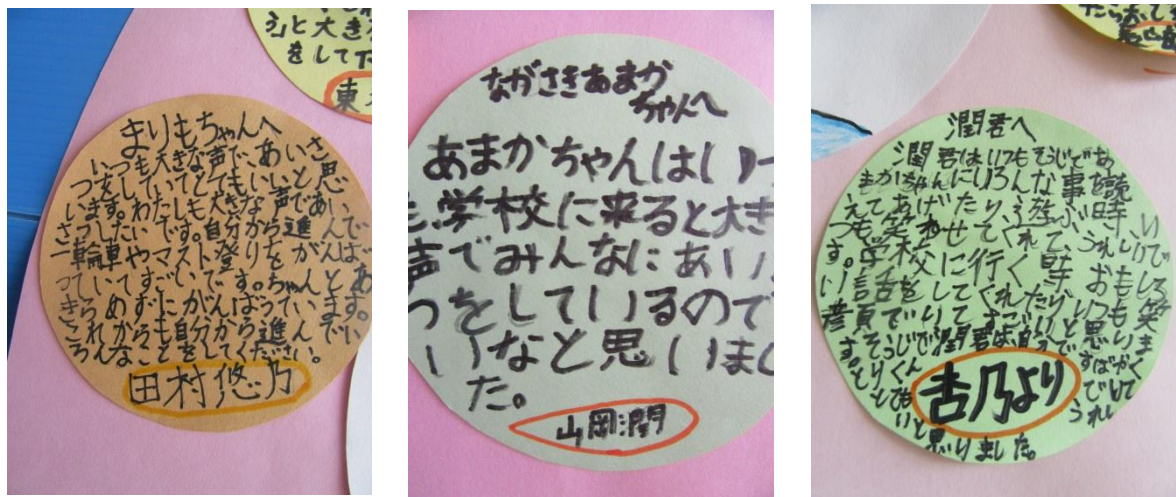 うと大き
をして下
東
まりもちゃんへ
いつも大きな声で、あいさ
つをしていてとてもいいと思
います。わたしも大きな声であい
さつしたいです。自分から進んで
一輪車やマスト登りをがんば
っていてすごいです。ちゃんとあ
きらめずにがんばっています。
これからも自分から進んでい
ろんなことをしてください。
田村悠乃
ながさきあまか
ちゃんへ
あまかちゃんはいつ
も学校に来ると大き
声でみんなにあい
つをしているので
いいなと思いまし
た。
山岡潤
潤君へ
潤君はいつもそうじであ
まかちゃんにいろんな事を
えてあげたり、遊ぶ時い
つも笑わせてくれて、うれしいで
す。学校に行く時おもしろ
い話をしてくれたりいつも笑
顔でいてすごいと思いま
す。そうじで潤君は、自分ですばやく
とりくんでいて
とてもうれし
いと思いました。
杏乃より